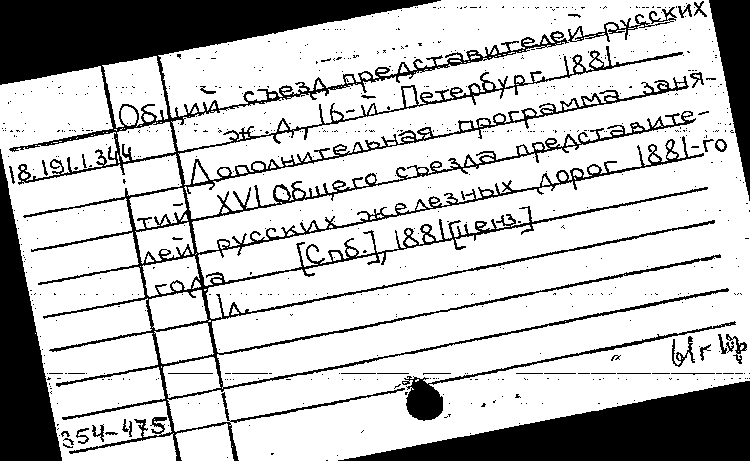 Общий съезд представителей русских
ж. д., 16-й. Петербург. 1881.
18.191.1.344
Дополнительная программа заня-
тий XVI Общего съезда представите-
лей русских железных дорог 1881-го
года. [Спб.], 1881 [ценз.]
1 л.
354-475